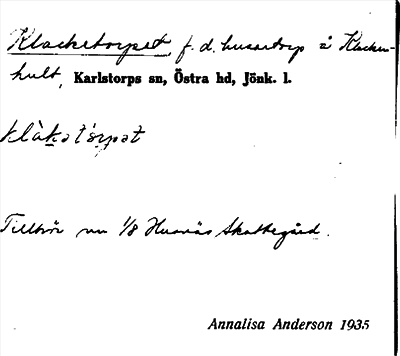 Klacketorpet, f. d. husartorp å Klacken-
hult, Karlstorps sn, Östra hd, Jönk. l.
klàkatórpət
Tillhör nu 1/8 Husnäs Skattegård.
Annalisa Anderson 1935